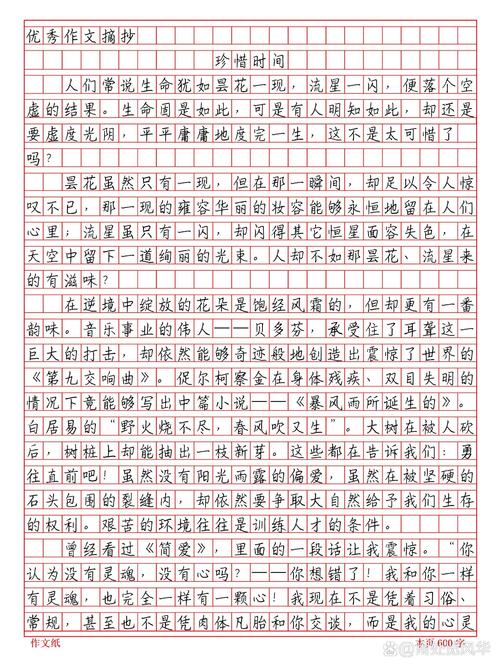 优秀作文摘抄
珍惜时间
人们常说生命犹如昙花一现，流星一闪，便落个空
虚的结果。生命固是如此，可是有人明知如此，却还是
要虚度光阴，平平庸庸地度完一生，这不是太可惜了
吗？
昙花虽然只有一现，但在那一瞬间，却足以令人惊
叹不已，那一现的雍容华丽的妆容能够永恒地留在人们
心里；流星虽只有一闪，却闪得其它恒星面容失色，在
天空中留下一道绚丽的光束。人却不如那昙花、流星来
的有滋味？
在逆境中绽放的花朵是饱经风霜的，但却更有一番
韵味。音乐事业的伟人——贝多芬，承受住了耳聋这一
巨大的打击，却依然能够奇迹般地创造出震惊了世界的
《第九交响曲》。促尔柯察金在身体残疾、双目失明的
情况下竟能够写出中篇小说——《暴风雨所诞生的》。
白居易的“野火烧不尽，春风吹又生”。大树在被人砍
后，树桩上却能抽出一枝新芽。这些都在告诉我们：勇
往直前吧！虽然没有阳光雨露的偏爱，虽然在被坚硬的
石头包围的裂缝内，却依然要争取大自然给予我们生存
的权利。艰苦的环境往往是训练人才的条件。
曾经看过《简爱》，里面的一段话让我震惊。“你
认为没有灵魂，没有心吗？——你想错了！我和你一样
有灵魂，也完全一样有一颗心！我现在不是凭着习俗、
常规，甚至也不是凭肉体凡胎和你交谈，而是我的心灵
作文纸 本页600字